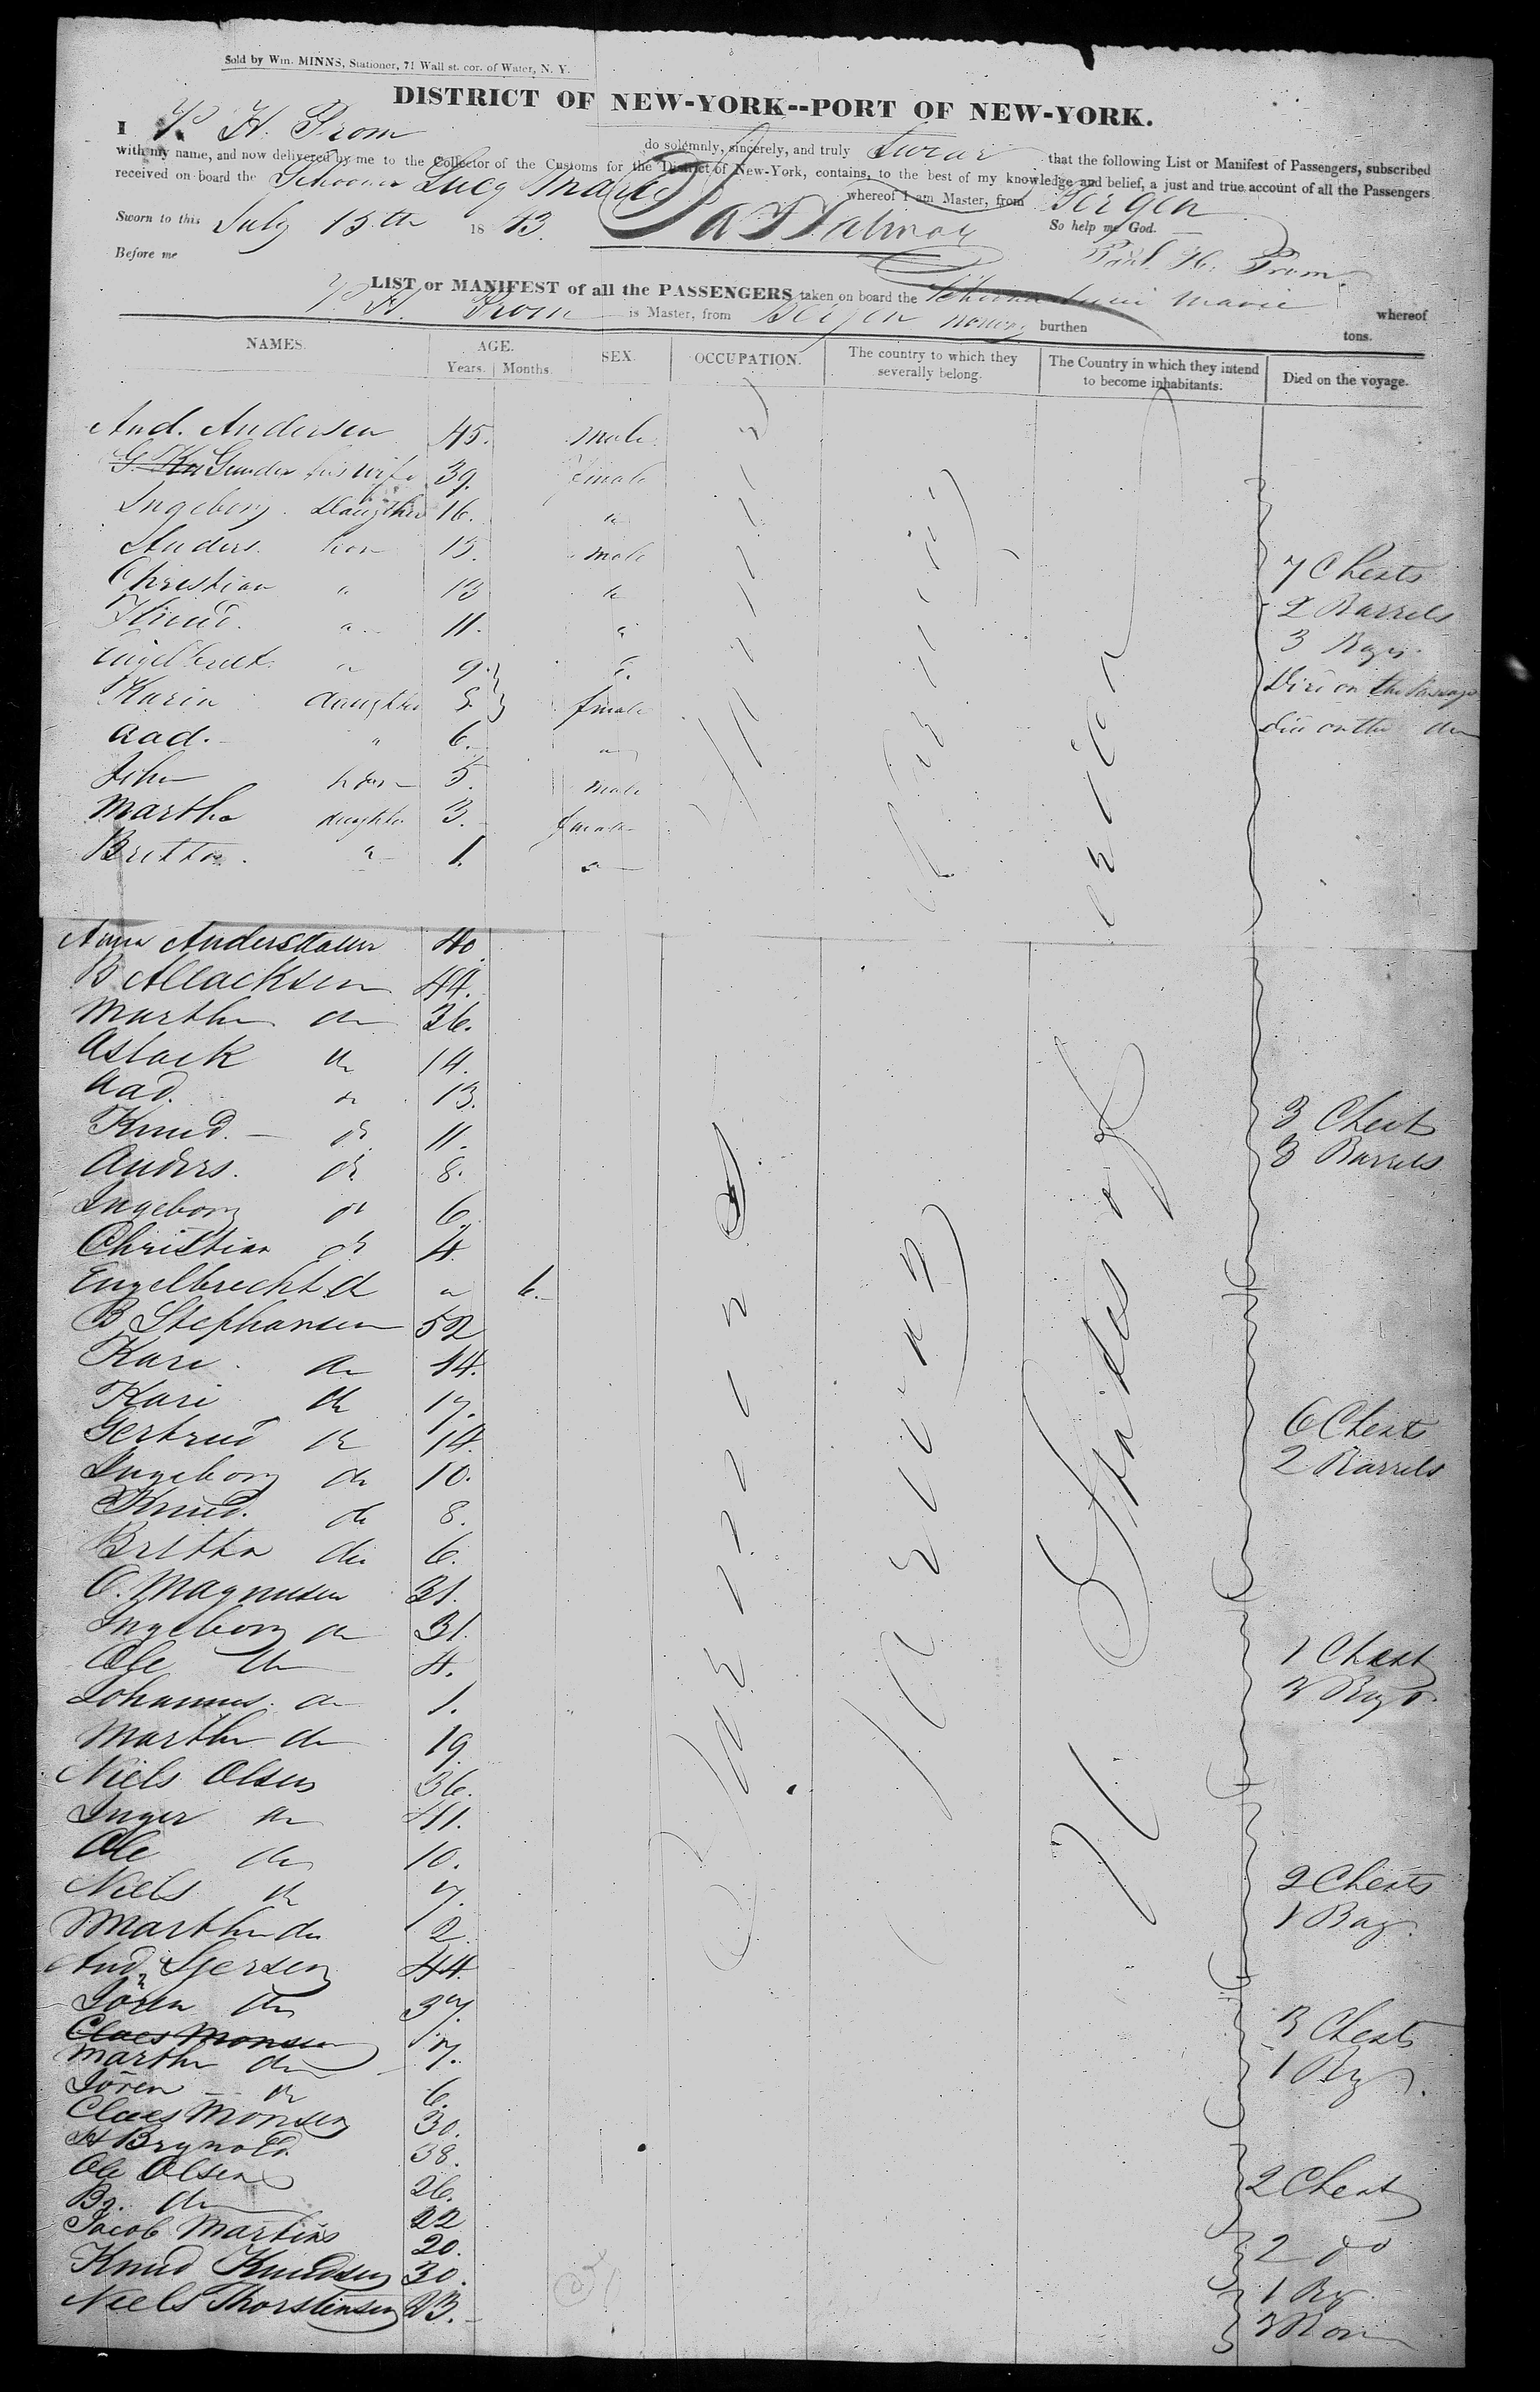 Sold by Wm. MINNS, Stationer, 71 Wall st. cor. of Water, N. Y.
DISTRICT OF NEW-YORK--PORT OF NEW-YORK.
I P. H. Prom do solemnly, sincerely, and truly Swear that the following List or Manifest of Passengers, subscribed
with my name, and now delivered by me to the Collector of the Customs for the District of New-York, contains, to the best of my knowledge and belief, a just and true account of all the Passengers
received on board the Schooner Lucy Maria whereof I am Master, from Bergen
Sworn to this July 15th 1843. So help me God.
Before me Paul H. Prom
LIST or MANIFEST of all the PASSENGERS taken on board the Schooner Marie whereof
P. H. Prom is Master, from Bergen Norway burthen tons.
NAMES. AGE. SEX. OCCUPATION. The country to which they severally belong. The Country in which they intend to become inhabitants. Died on the voyage.
Years. Months.
And. Andersen 45. male
G. Gunder his wife 39. female
Ingeborg. Daughter 16. "
Anders. son 15. male
Christian " 13 "
Knud. " 11. "
Engelbrect. " 9. "
Karin daughter 8. female
Aad. " 6. "
John son 5. male
Martha daughter 3. female
Britta. " 1. "
7 Chests
2 Barrels
3 Bags
Died on the Passage
died on the do
Anna Andersdatter 40.
B Allacksen 44.
Martha do 36.
Aslack do 14.
Aad. do 13.
Knud. do 11.
Anders. do 8.
Ingeborg do 6.
Christian do 4.
Engelbrecht d " 6.
3 Chests
3 Barrels
B Stephansen 52
Kari. do 44.
Kari do 17.
Gertrud do 14.
Ingeborg do 10.
Knud. do 8.
Britha do 6.
6 Chests
2 Barrels
O. Magnusen 31.
Ingeborg do 31.
Ole do 4.
Johannes. do 1.
Martha do 19.
1 Chest
3 Bags
Niels Olsen 36.
Inger do 41.
Ole do 10.
Niels do 7.
Martha do 2.
2 Chests
1 Bag.
And. Sjersen 44.
Sören do 37.
Claes Monsen
Martha do 7.
Sören do 6.
3 Chests
1 Bag.
Claes Monsen 30.
H Brynold. 38.
Ole Olsen 26.
Br. do 22
Jacob Martins 20.
Knud Knudsen 30.
Niels Thorstensen 23.
2 Chest
2 do
1 Bg
Farmers
Norway
U. States of America